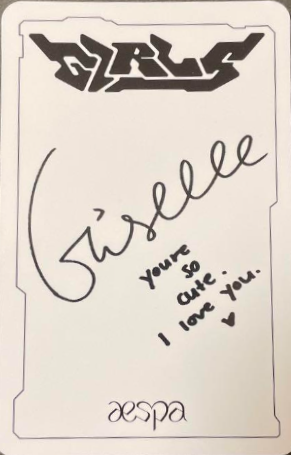 GIRLS
Giselle
you're
so
cute.
I love you.
aespa